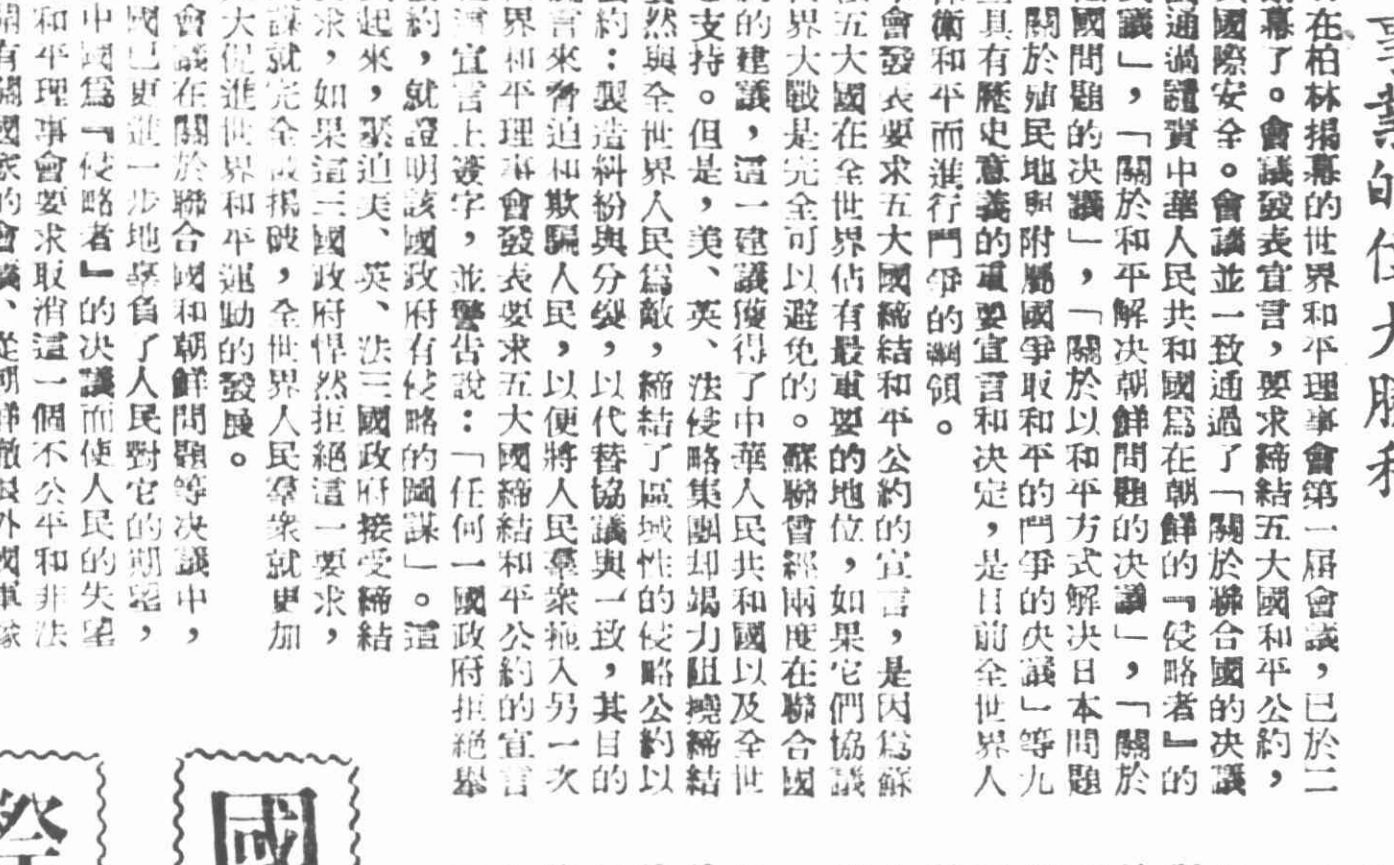 事業的偉大勝利
在柏林揭幕的世界和平理事會第一屆會議，已於二
幕了。會議發表宣言，要求締結五大國和平公約，
國際安全。會議並一致通過了「關於聯合國的决議
通過譴責中華人民共和國爲在朝鮮的『侵略者』的
議」，「關於和平解决朝鮮問題的决議」，「關於
國問題的决議」，「關於以和平方式解决日本問題
關於殖民地與附屬國爭取和平的鬥爭的决議」等九
具有歷史意義的重要宣言和决定，是目前全世界人
衛和平而進行鬥爭的綱領。
會發表要求五大國締結和平公約的宣言，是因爲蘇
五大國在全世界佔有最重要的地位，如果它們協議
界大戰是完全可以避免的。蘇聯曾經兩度在聯合國
的建議，這一建議獲得了中華人民共和國以及全世
支持。但是，美、英、法侵略集團却竭力阻撓締結
然與全世界人民爲敵，締結了區域性的侵略公約以
約：製造糾紛與分裂，以代替協議與一致，其目的
言來脅迫和欺騙人民，以便將人民羣衆拖入另一次
界和平理事會發表要求五大國締結和平公約的宣言
宣言上簽字，並警告說：「任何一國政府拒絕舉
約，就證明該國政府有侵略的圖謀」。這
起來，緊迫美、英、法三國政府接受締結
求，如果這三國政府悍然拒絕這一要求，
謀就完全被揭破，全世界人民羣衆就更加
大促進世界和平運動的發展。
會議在關於聯合國和朝鮮問題等决議中，
國已更進一步地辜負了人民對它的期望，
中國爲『侵略者』的决議而使人民的失望
和平理事會要求取消這一個不公平和非法
有關國家的會議、從朝鮮撤退外國軍隊
國
際